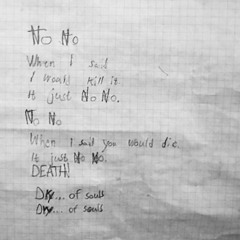 No No
When I said
I would kill it.
It just No No.
No No
When I said you would die.
It just No No.
DEATH!
... of souls
... of souls